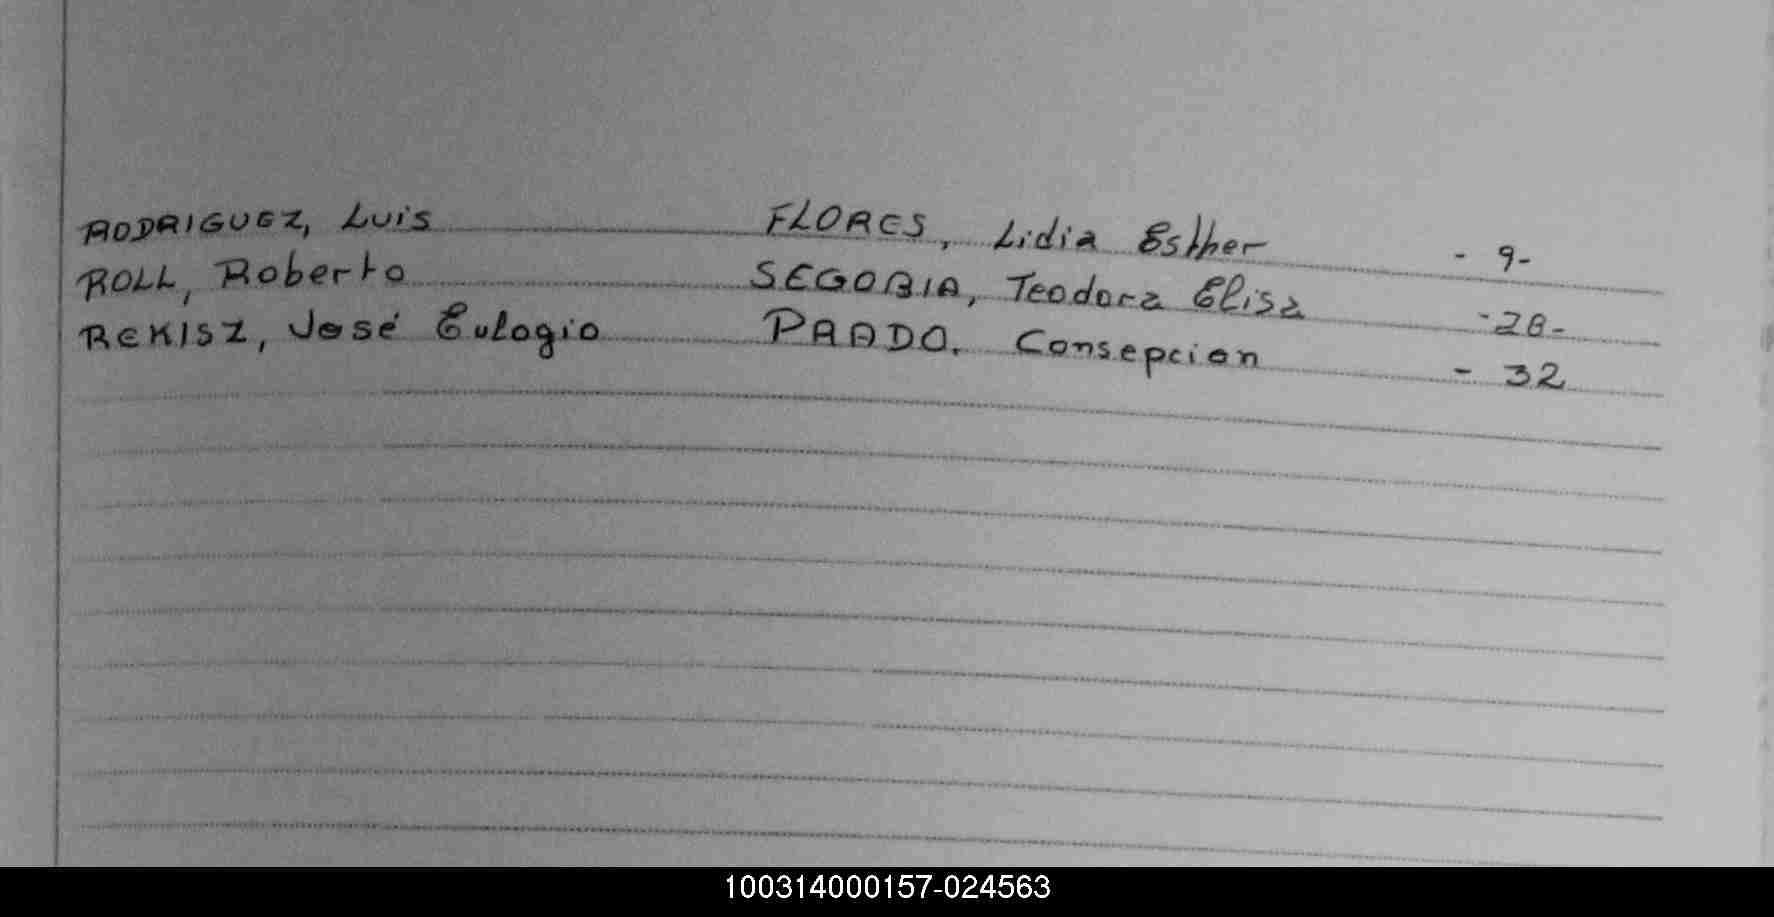 RODRIGUEZ, Luis FLORES, Lidia Esther - 9-
ROLL, Roberto SEGOBIA, Teodora Elisa -28-
REKISZ, José Eulogio PRADO. Consepcion - 32
100314000157-024563